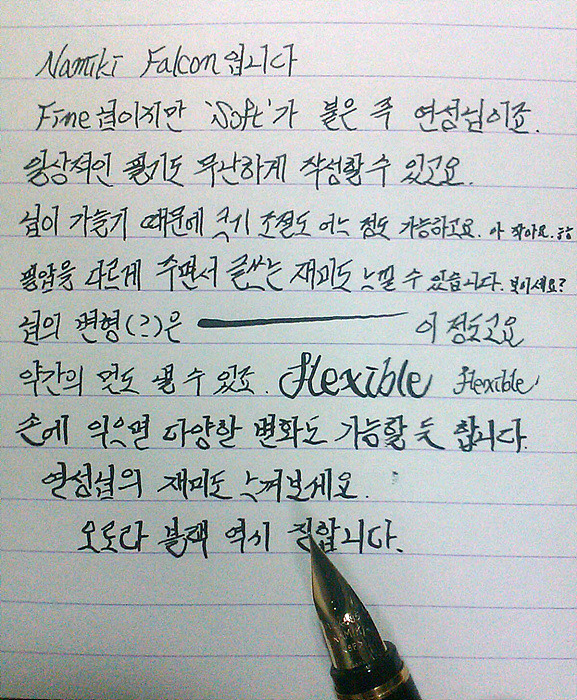 Namiki Falcon입니다
Fine 닙이지만 'Soft'가 붙은 즉 연성닙이죠.
일상적인 필기도 무난하게 작성할 수 있고요.
닙이 가늘기 때문에 크기 조절도 어느 정도 가능하고요. 아 작아요. ㅎㅎ
필압을 다르게 주면서 글쓰는 재미도 느낄 수 있습니다. 보이세요?
닙의 변형(?)은 이 정도고요
약간의 멋도 낼 수 있죠. flexible flexible
손에 익으면 다양한 변화도 가능할 듯 합니다.
연성닙의 재미도 느껴보세요.
오로라 블랙 역시 진합니다.